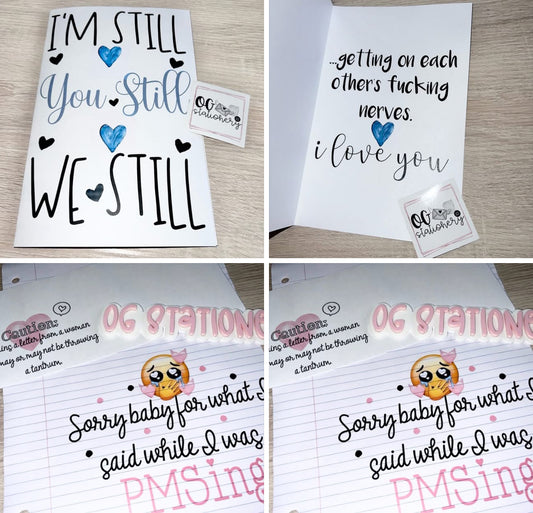 I'M STILL
You Still
WE STILL
OG
stationery
...getting on each
other's fucking
nerves.
i love you
OG
stationery
OG STATIONE
Caution:
ing a letter from a woman
may or may not be throwing
a tantrum.
Sorry baby for what I
said while I was
PMSing
OG STATIONE
Caution:
ing a letter from a woman
may or may not be throwing
a tantrum.
Sorry baby for what I
said while I was
PMSing